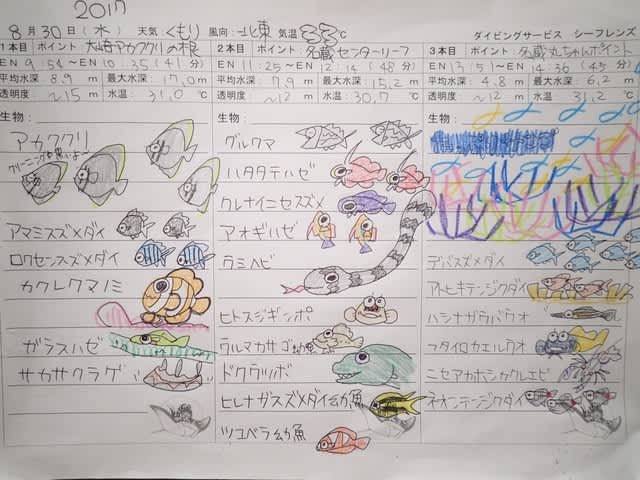 2017
8月30日(水) 天気 くもり 風向: 北東 気温 33℃ ダイビングサービス シーフレンズ
1本目 ポイント: 大崎アカククリの根
EN 9:54～EN 10:35(41分)
平均水深: 8.9 m 最大水深: 17.0 m
透明度 ～15 m 水温: 31.0 ℃
生物:
アカククリ
クリーニングも思いよー
アマミスズメダイ
ロクセンスズメダイ
カクレクマノミ
ガラスハゼ
サカサクラゲ
2本目 ポイント: 名蔵センターリーフ
EN 11:25～EN 12:14(48分)
平均水深: 7.9 m 最大水深: 15.2 m
透明度 ～12 m 水温: 30.7 ℃
生物:
グルクマ
ハタタテハゼ
クレナイニセスズメ
アオギハゼ
ウミヘビ
ヒトスジギンポ
ウルマカサゴ幼魚
ドクウツボ
ヒレナガスズメダイ幼魚
ツユベラ幼魚
3本目 ポイント: 名蔵丸ちゃんポイント
EN 13:51～EN 14:36(45分)
平均水深: 4.8 m 最大水深: 6.2 m
透明度 ～12 m 水温: 31.2 ℃
生物:
デバスズメダイ
アトヒキテンジクダイ
ハシナガウバウオ
フタイロカエルウオ
ニセアカホシカクレエビ
ネオンテンジクダイ